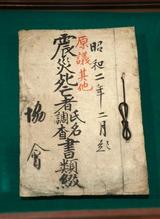 昭和二年二月起
原議其他
震災死亡者調査書類綴
氏名
協會